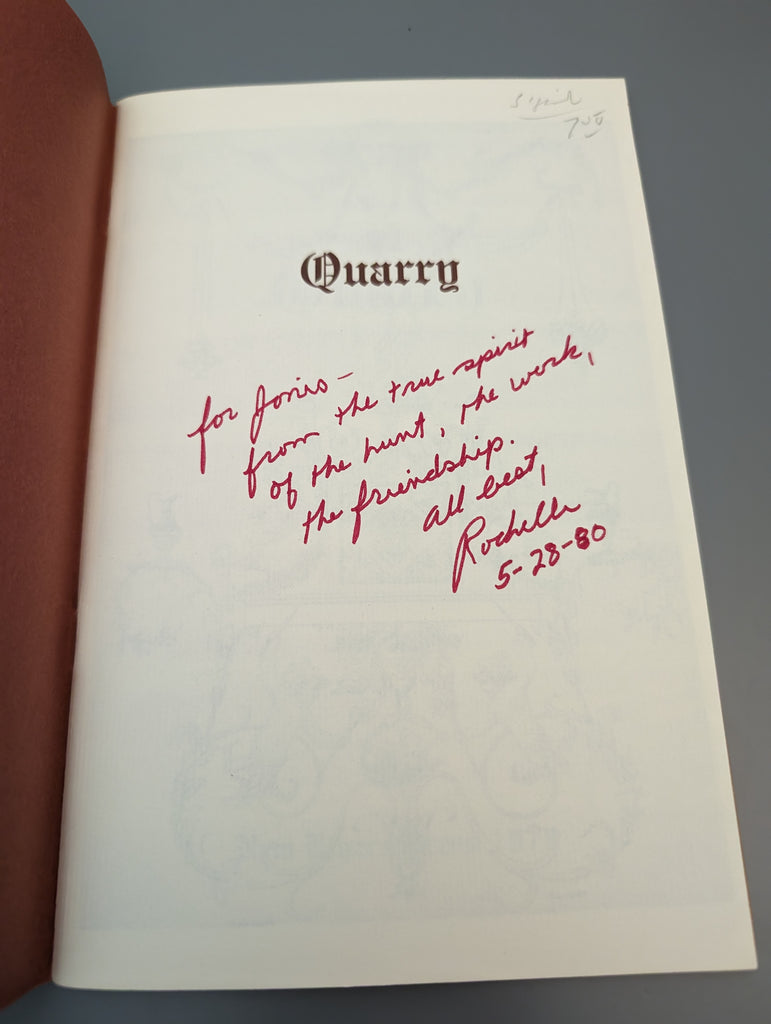 signed
7.00
Quarry
for Jonis –
from the true spirit
of the hunt, the work,
the friendship.
all best,
Rochelle
5-28-80